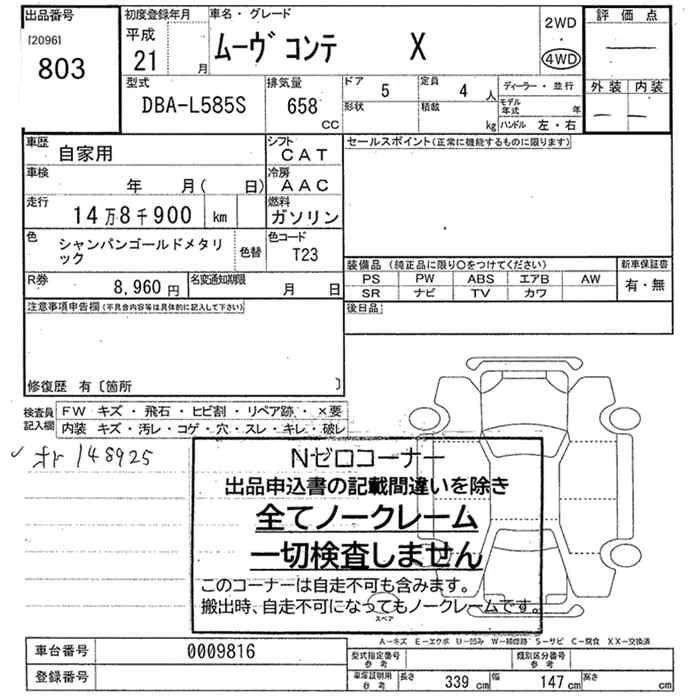 出品番号
[2096]
803
初度登録年月
平成
21 月
車名・グレード
ムーヴ コンテ X
2WD
・
4WD
評価点
—
外装 内装
— —
型式
DBA-L585S
排気量
658
CC
ドア 5
定員 4 人
形状
積載 kg
ディーラー・並行
モデル年式 年
ハンドル 左・右
車歴 自家用
シフト CAT
車検 年 月( 日)
冷房 AAC
走行 14万8千900 km
燃料 ガソリン
色 シャンパンゴールドメタリック
色替
色コード T23
R券 8,960 円
名変通知期限 月 日
セールスポイント(正常に機能するものに限ります)
装備品 (純正品に限り〇をつけてください)
PS PW ABS エアB AW
SR ナビ TV カワ
新車保証書
有・無
後日品
注意事項申告欄(不具合内容等は具体的に記入して下さい)
修復歴 有〔箇所 〕
検査員記入欄
FW キズ・飛石・ヒビ割・リペア跡・×要
内装 キズ・汚レ・コゲ・穴・スレ・キレ・破レ
148925
Nゼロコーナー
出品申込書の記載間違いを除き
全てノークレーム
一切検査しません
このコーナーは自走不可も含みます。
搬出時、自走不可になってもノークレームです。
スペア
A−キズ E−エクボ U−凹み W−補修跡 S−サビ C−腐食 XX−交換済
車台番号 0009816
登録番号
型式指定番号 参考
類別区分番号 参考
車庫証明用 参考
長さ 339 cm
幅 147 cm
高さ cm